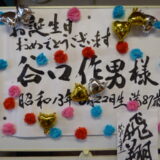 お誕生日
おめでとうございます
谷口作男様
昭和13年 月22日生 満87歳
飛翔